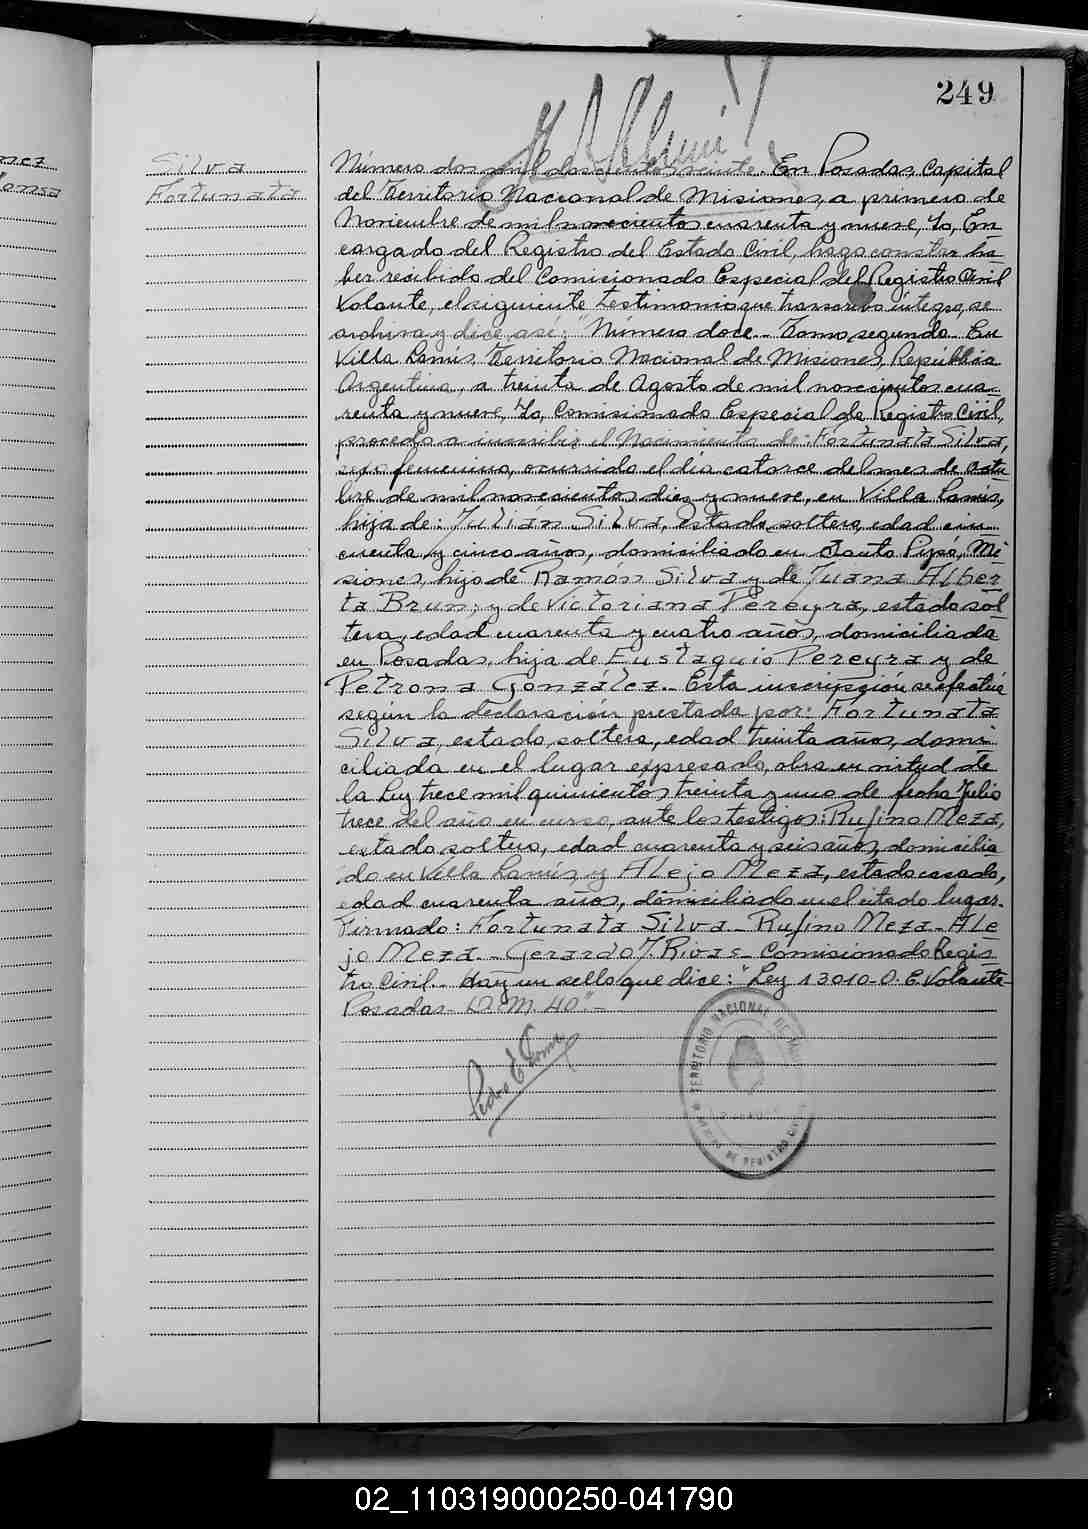 249
Silva
Fortunata
Número dos mil doscientos veinte. En Posadas Capital
del Territorio Nacional de Misiones, a primero de
Noviembre de mil novecientos cuarenta y nueve, Yo, En
cargado del Registro del Estado Civil, hago constar ha
ber recibido del Comisionado Especial del Registro Civil
Volante, el siguiente testimonio que transcribo íntegro, se
archiva y dice así: "Número doce - Tomo segundo. En
Villa Lanús, Territorio Nacional de Misiones, República
Argentina, a treinta de Agosto de mil novecientos cua-
renta y nueve, Yo, Comisionado Especial de Registro Civil,
procedo a inscribir el Nacimiento de: Fortunata Silva,
sexo femenino, ocurrido el día catorce del mes de Octu
bre de mil novecientos diez y nueve, en Villa Lanús,
hija de: Julián Silva, estado soltero, edad cin-
cuenta y cinco años, domiciliado en Santo Pipó, Mi
siones, hijo de Ramón Silva y de Juana Alber
ta Brun; y de Victoriana Pereyra, estado sol
tera, edad cuarenta y cuatro años, domiciliada
en Posadas, hija de Eustaquio Pereyra y de
Petrona González. - Esta inscripción se efectúa
según la declaración prestada por: Fortunata
Silva, estado soltera, edad treinta años, domi-
ciliada en el lugar expresado, obra en virtud de
la Ley trece mil quinientos treinta y uno de fecha Julio
trece del año en curso, ante los testigos: Rufino Meza,
estado soltero, edad cuarenta y seis años, domicilia
do en Villa Lanús, y Alejo Meza, estado casado,
edad cuarenta años, domiciliado en el citado lugar. -
Firmado: Fortunata Silva - Rufino Meza - Ale
jo Meza. - Gerardo J. Rivas - Comisionado Regis
tro Civil. - Hay un sello que dice: "Ley 13010 - O. E. Volante
Posadas -
TERRITORIO NACIONAL DE
DE REGISTRO CIVIL
02_110319000250-041790